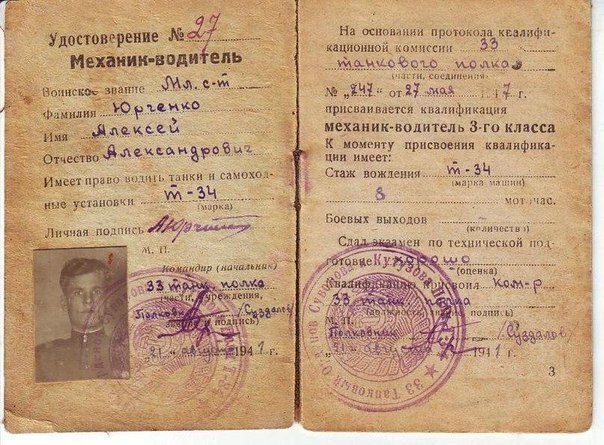 Удостоверение № 27
Механик-водитель
Воинское звание Мл. с-т
Фамилия Юрченко
Имя Алексей
Отчество Александрович
Имеет право водить танки и самоход-
ные установки Т-34
(марка)
Личная подпись
М. П.
Командир (начальник)
33 танк. полка
(части, учреждения,
Полковник /Суздалов/
звание и подпись)
"21" августа 1947 г.
На основании протокола квалифи-
кационной комиссии 33
танкового полка
(части, соединения)
№ "847" от 27 мая 7 г.
присваивается квалификация
механик-водитель 3-го класса
К моменту присвоения квалифика-
ции имеет:
Стаж вождения Т-34
(марка машин)
8 моточас.
Боевых выходов -
(количество)
Сдал экзамен по технической под-
готовке хорошо
(оценка)
Квалификацию присвоил Ком-р
33 танк. полка
(должность, звание, подпись)
М. П.
Полковник /Суздалов/
"21" августа 194 г.
33 Танковый Орденов Суворова и Кутузова
3